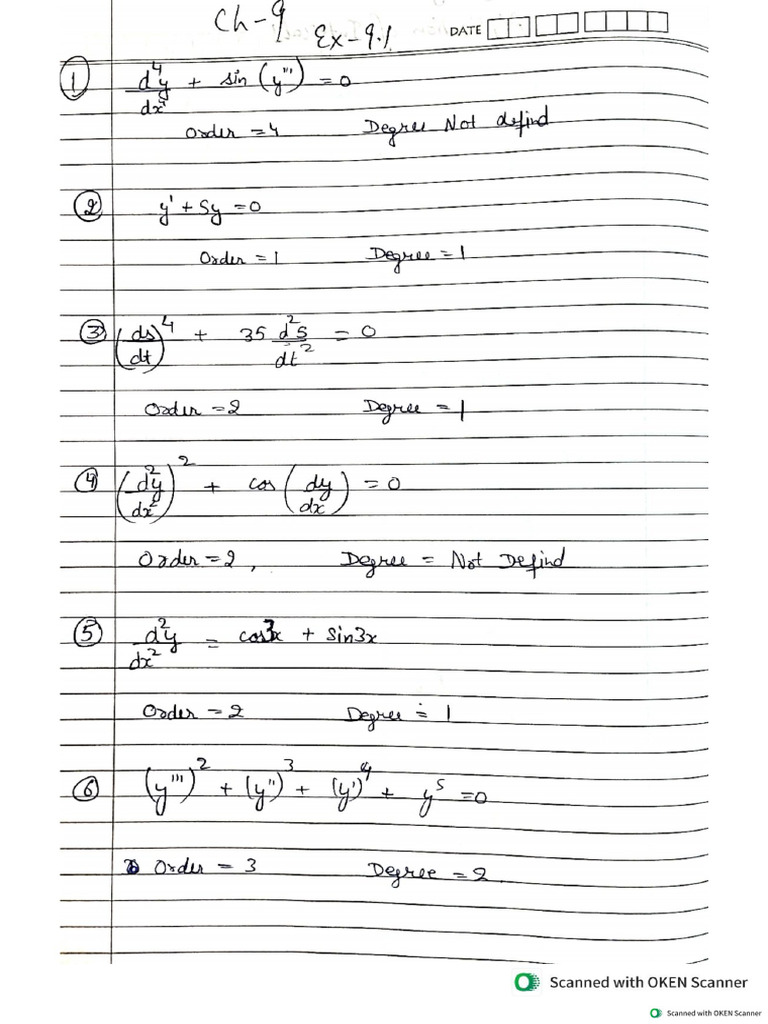 Ch-9 Ex-9.1 DATE
① d⁴y/dx⁴ + sin (y''') = 0
Order = 4 Degree Not defind
② y' + 5y = 0
Order = 1 Degree = 1
③ (ds/dt)⁴ + 3S d²S/dt² = 0
Order = 2 Degree = 1
④ (d²y/dx²)² + cos (dy/dx) = 0
Order = 2, Degree = Not Defind
⑤ d²y/dx² = cos3x + Sin3x
Order = 2 Degree = 1
⑥ (y''')² + (y'')³ + (y')⁴ + y⁵ = 0
Order = 3 Degree = 2
Scanned with OKEN Scanner
Scanned with OKEN Scanner